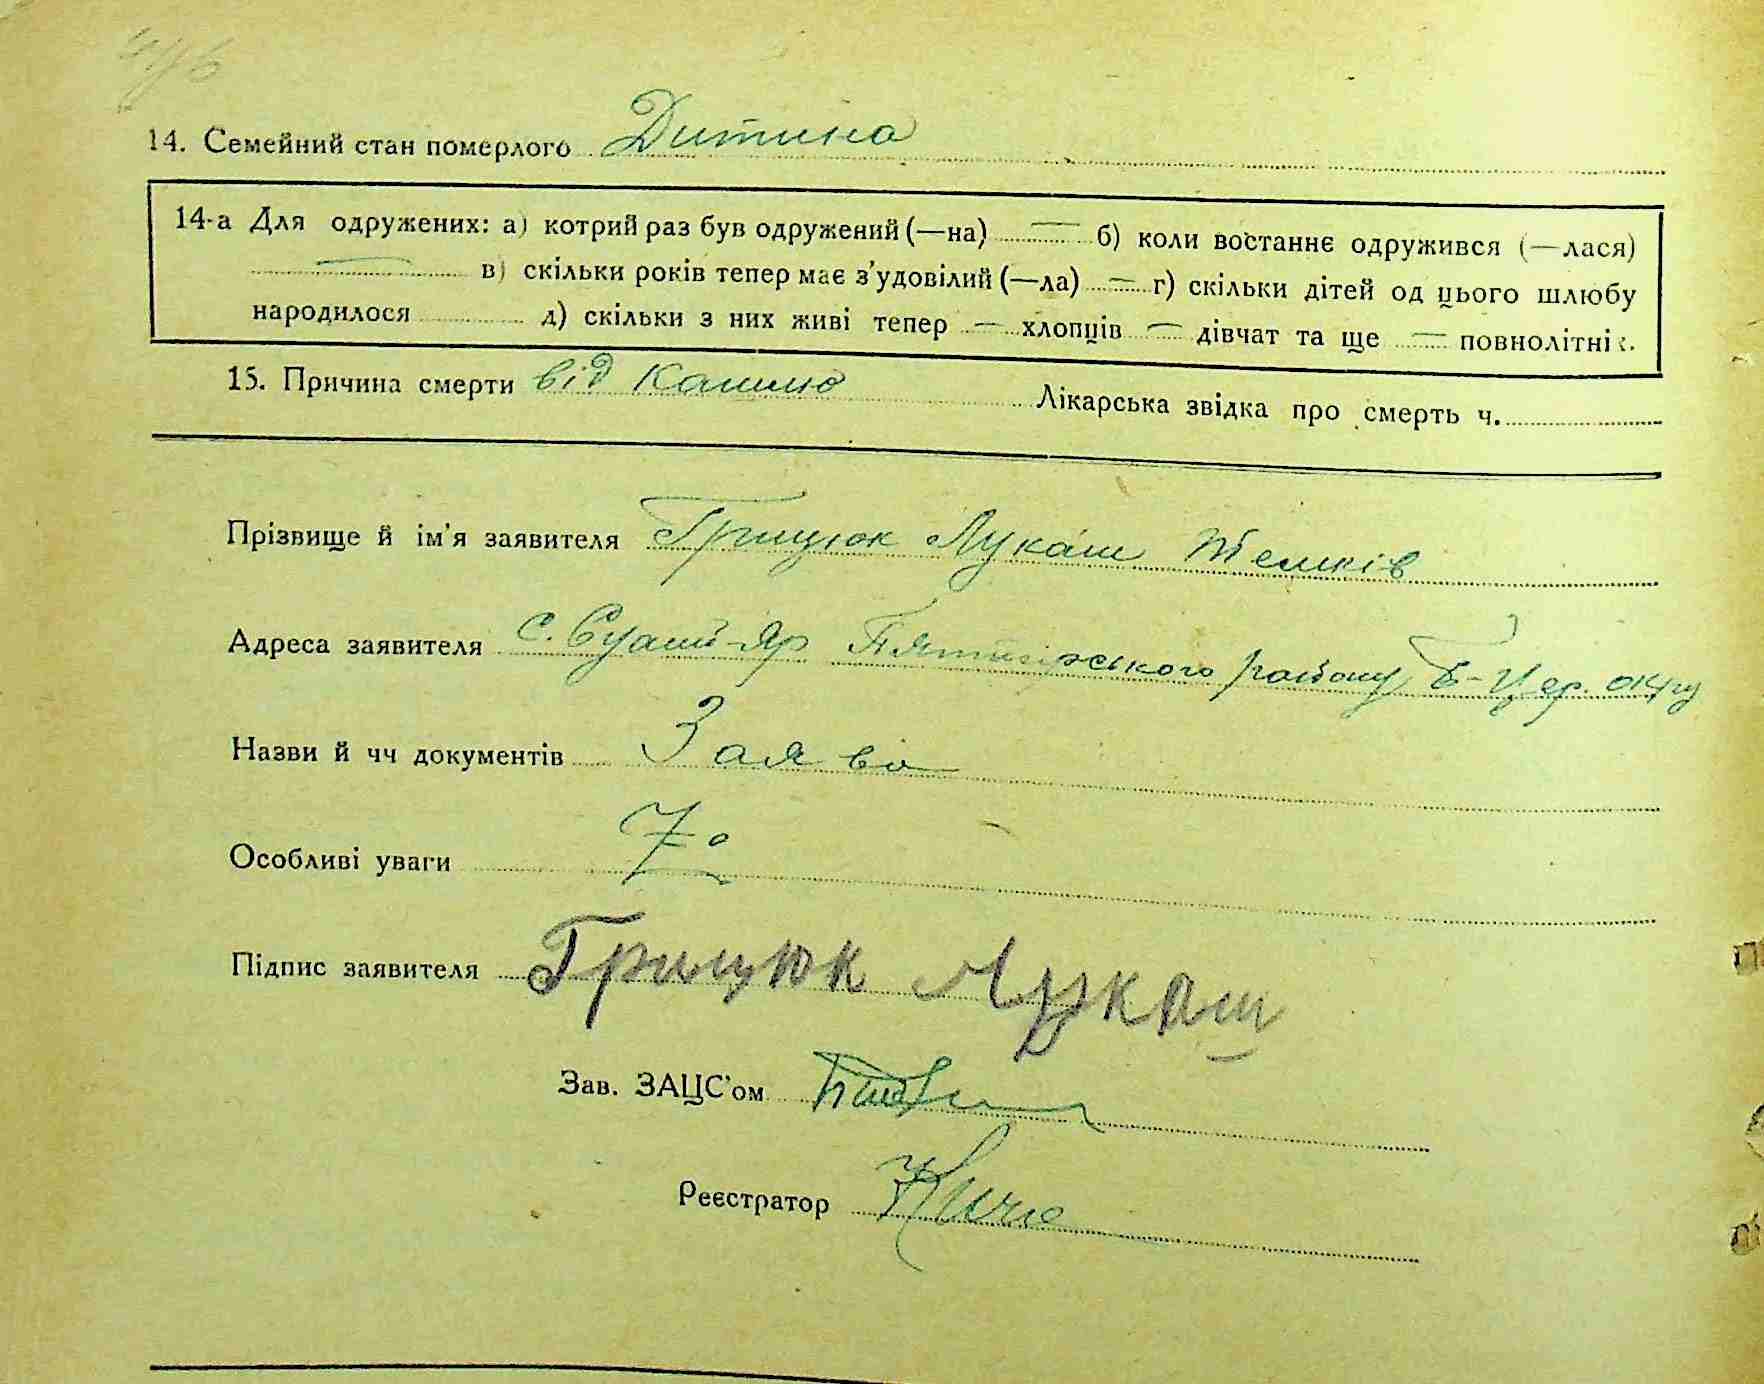 14. Семейний стан померлого Дитина
14-а Для одружених: а) котрий раз був одружений (—на) — б) коли востаннє одружився (—лася)
— в) скільки років тепер має з'удовілий (—ла) — г) скільки дітей од цього шлюбу
народилося д) скільки з них живі тепер — хлопців — дівчат та ще — повнолітніх.
15. Причина смерти від кашлю Лікарська звідка про смерть ч.
Прізвище й ім'я заявителя Грицюк Лукаш
Адреса заявителя с. Сухий-Яр П'ятигірського району Б-Цер. окргу
Назви й чч документів Заява
Особливі уваги
Підпис заявителя Грицюк Лукаш
Зав. ЗАЦС'ом
Реєстратор